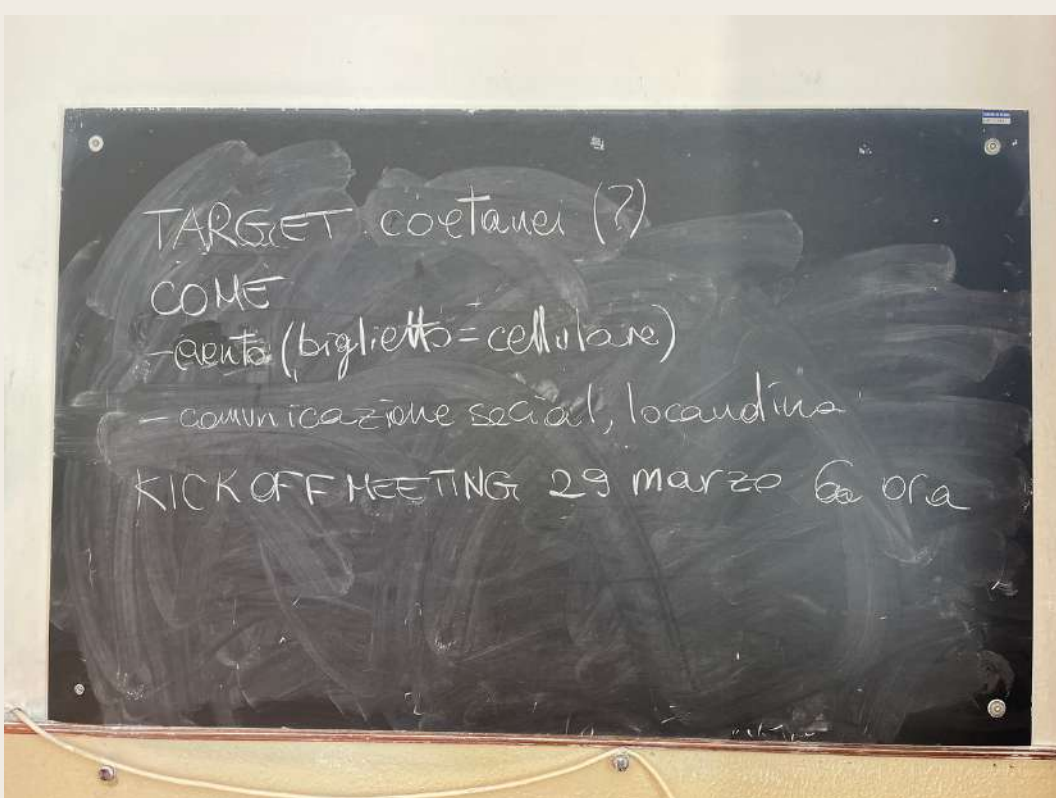 TARGET coetanei (?)
COME
- evento (biglietto = cellulare)
- comunicazione social, locandina
KICK OFF MEETING 29 marzo 6a ora